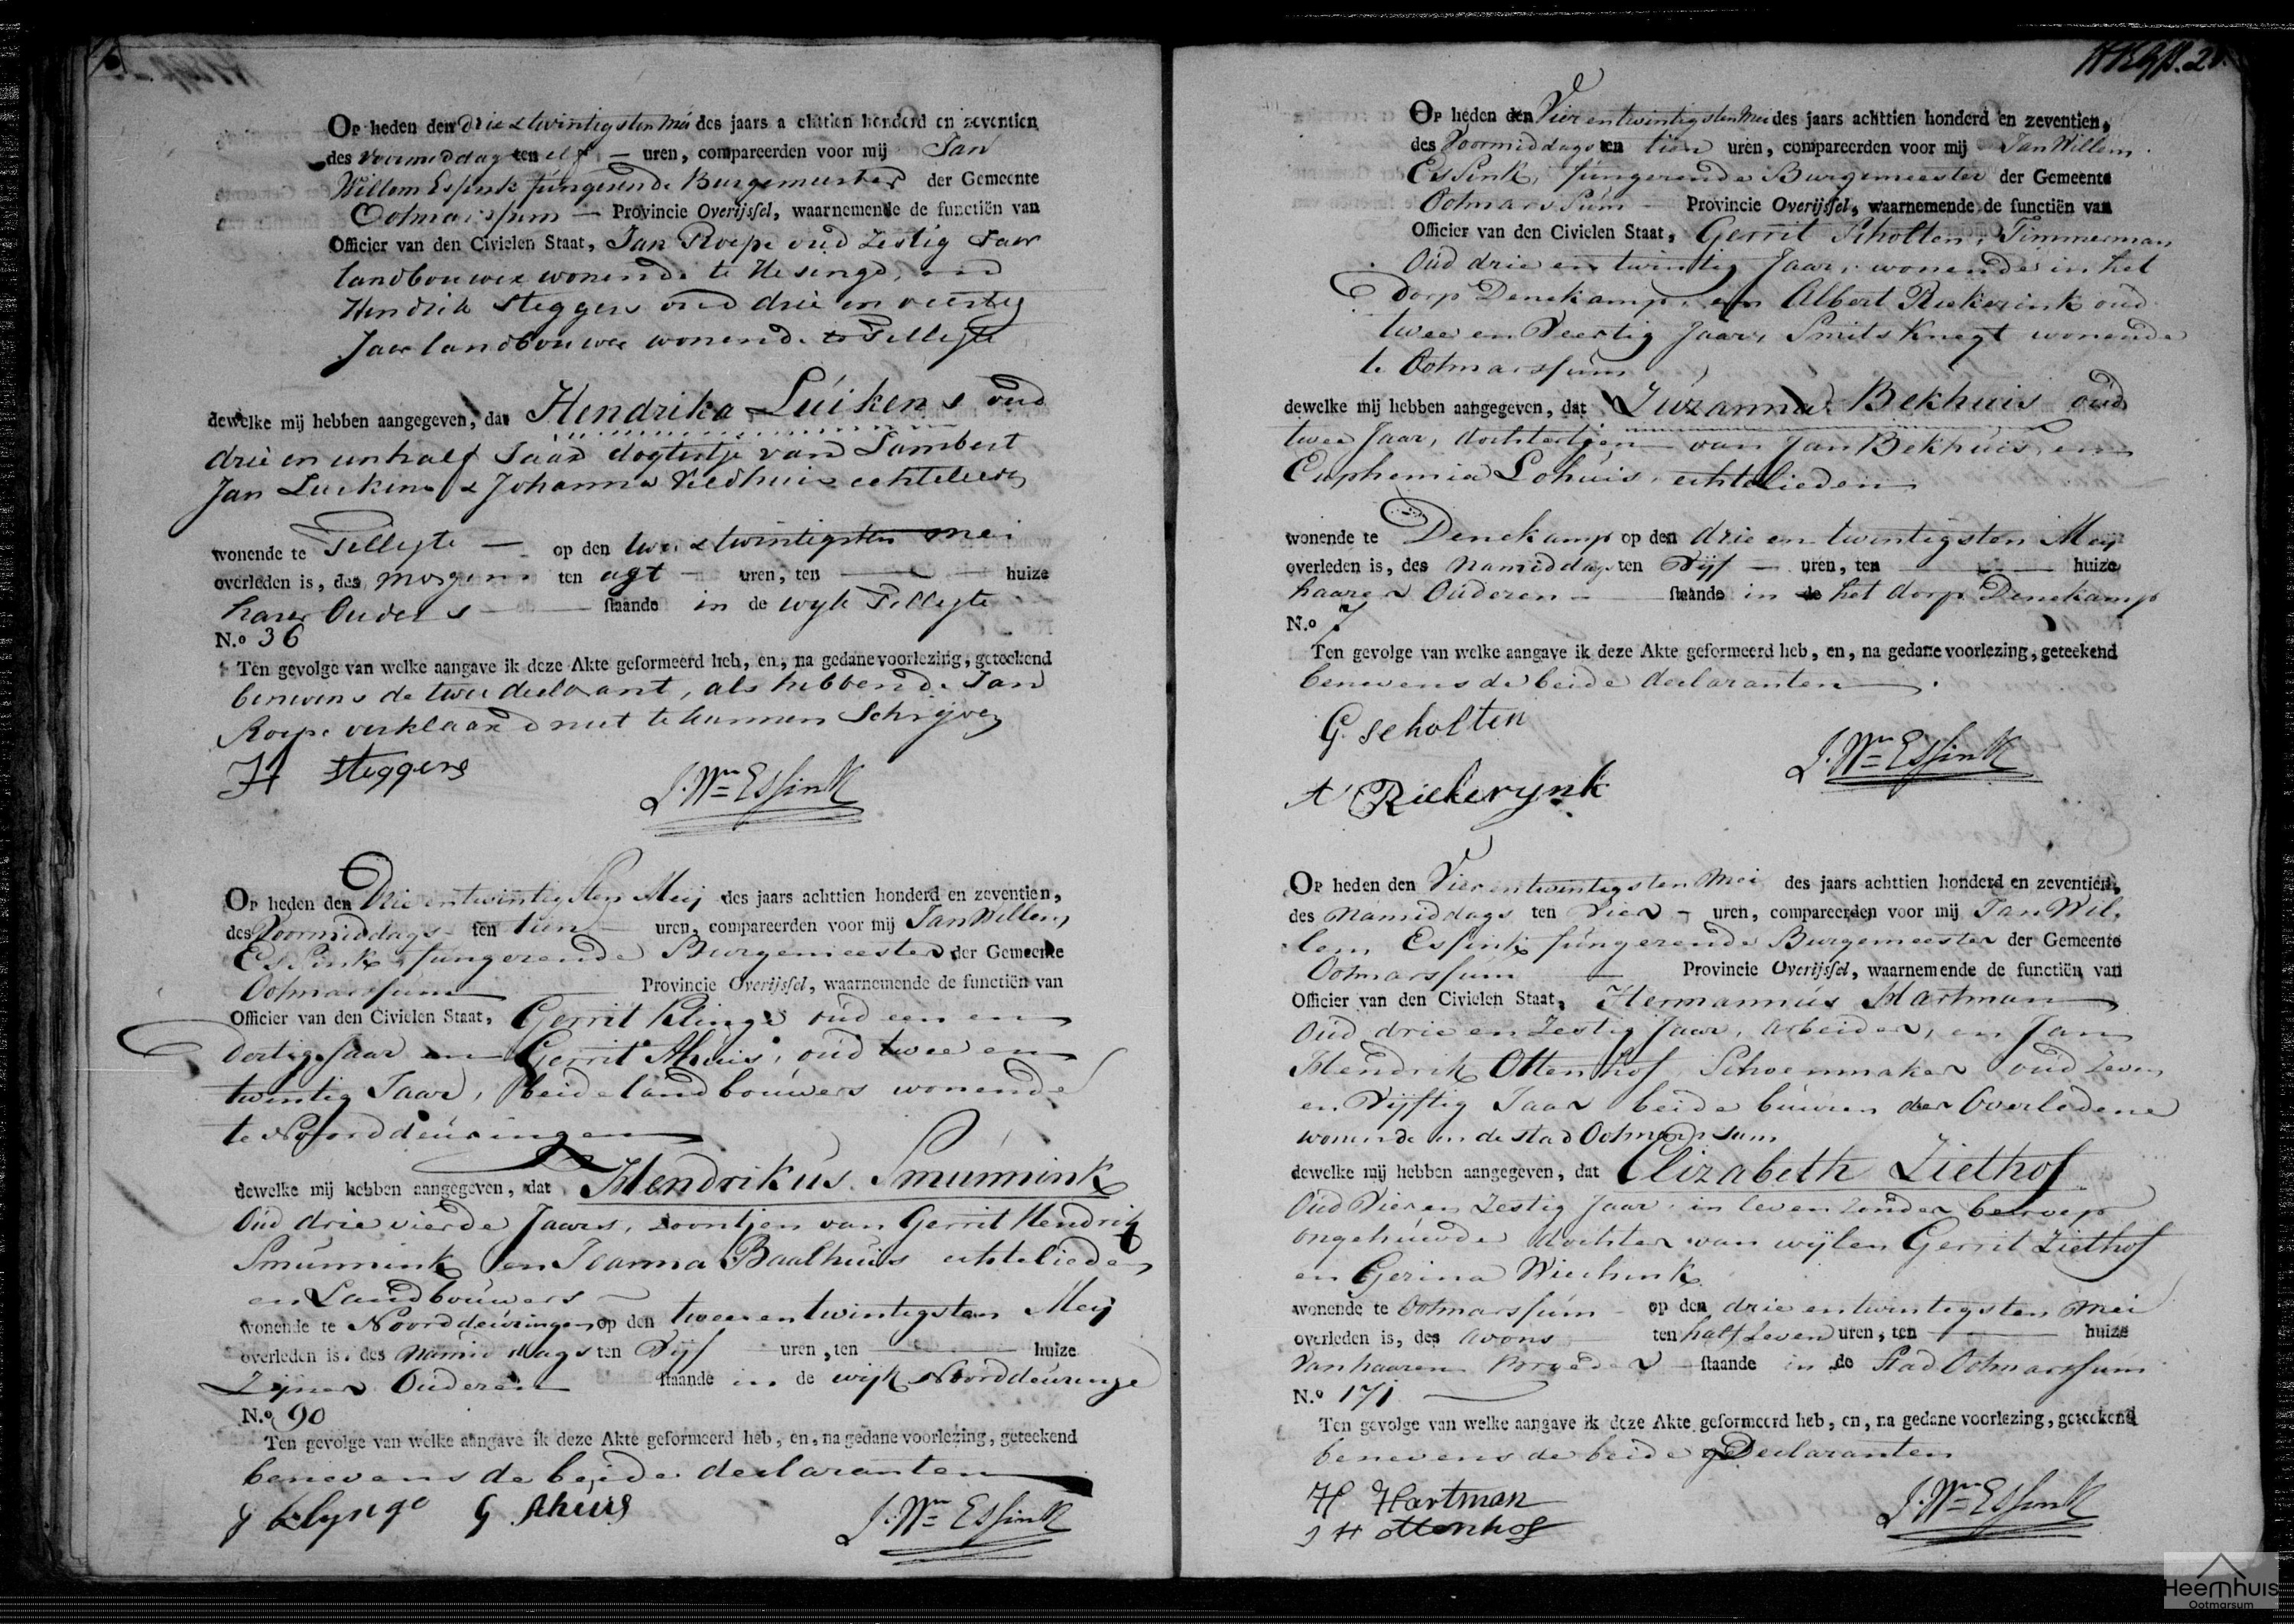 Op heden den drie & twintigsten Mei des jaars achttien honderd en zeventien
des voormiddag ten elf — uren, compareerden voor mij Jan
Willem Essink fungerende Burgemeester der Gemeente
Ootmarssum — Provincie Overijssel, waarnemende de functiën van
Officier van den Civielen Staat, Jan Roepe oud zestig Jaar
landbouwer wonende te Hesinge, en
Hendrik Steggers oud drie en veertig
Jaar landbouwer wonende te Tilligte
dewelke mij hebben aangegeven, dat Hendrika Luikens oud
drie en een half Jaar dogtertje van Lambert
Jan Luikens & Johanna Veldhuis echtelieden
wonende te Tilligte — op den twee & twintigsten Mei
overleden is, des morgens ten agt — uren, ten — huize
harer Ouders — staande in de wyk Tilligte
N.o 36
Ten gevolge van welke aangave ik deze Akte geformeerd heb, en, na gedane voorlezing, geteekend
benevens de twee declarant, als hebbende Jan
Roepe verklaard niet te kunnen Schrijven
H Steggers
J. Wm Essink
Op heden den Drie en twintigsten Meij des jaars achttien honderd en zeventien,
des Voormiddags ten tien uren, compareerden voor mij Jan Willem
Essink, fungerende Burgemeester der Gemeente
Ootmarssum — Provincie Overijssel, waarnemende de functiën van
Officier van den Civielen Staat, Gerrit Klinge oud een en
dertig Jaar en Gerrit Ahuis, oud twee en
twintig Jaar, beide landbouwers wonende
te Noorddeuringen
dewelke mij hebben aangegeven, dat Hendrikus Smunnink
Oud drie vierde Jaars, zoontjen van Gerrit Hendrik
Smunnink en Joanna Baalhuis echtelieden
en Landbouwers
wonende te Noorddeuringen op den twee en twintigsten Meij
overleden is, des namiddags ten Vijf uren, ten — huize
Zijner Ouderen staande in de wijk Noorddeuringe
N.o 90
Ten gevolge van welke aangave ik deze Akte geformeerd heb, en, na gedane voorlezing, geteekend
benevens de beide declaranten
g klynge G Ahuis
J. Wm Essink
Op heden den Vier en twintigsten Mei des jaars achttien honderd en zeventien,
des Voormiddags ten tien uren, compareerden voor mij Jan Willem
Essink, fungerende Burgemeester der Gemeente
Ootmarssum — Provincie Overijssel, waarnemende de functiën van
Officier van den Civielen Staat, Gerrit Scholten, Timmerman
Oud drie en twintig Jaar, wonende in het
dorp Denekamp, en Albert Riekerink oud
twee en Veertig Jaar, Smits Knegt wonende
te Ootmarssum
dewelke mij hebben aangegeven, dat Zuzanna Bekhuis oud
twee Jaar, dochtertjen van Jan Bekhuis en
Euphemia Lohuis, echtelieden
wonende te Denekamp op den drie en twintigsten Meij
overleden is, des namiddags ten Vijf — uren, ten — huize
haarer Ouderen — staande in de het dorp Denekamp
N.o 7
Ten gevolge van welke aangave ik deze Akte geformeerd heb, en, na gedane voorlezing, geteekend
benevens de beide declaranten
G. Scholten
J. Wm Essink
A Riekerynk
Op heden den Vier en twintigsten Mei des jaars achttien honderd en zeventien,
des namiddags ten Vier — uren, compareerden voor mij Jan Wil,
lem Essink fungerende Burgemeester der Gemeente
Ootmarssum — Provincie Overijssel, waarnemende de functiën van
Officier van den Civielen Staat, Hermannus Hartman
Oud drie en zestig Jaar, arbeider, en Jan
Hendrik Ottenhof, Schoenmaker oud zeven
en Vijftig Jaar beide buuren der Overledene
wonende in de stad Ootmarssum
dewelke mij hebben aangegeven, dat Elizabeth Ziethof
Oud Vier en zestig Jaar, in leven zonder beroep
ongehuwde dochter van wijlen Gerrit Ziethof
en Gerina Wiechink
wonende te Ootmarssum — op den drie en twintigsten Mei
overleden is, des avons ten half zeven uren, ten — huize
Van haaren Broeder — staande in de Stad Ootmarssum
N.o 171
Ten gevolge van welke aangave ik deze Akte geformeerd heb, en, na gedane voorlezing, geteekend
benevens de beide Declaranten
H. Hartman
J H ottenhof
J. Wm Essink
Heemhuis
Ootmarsum